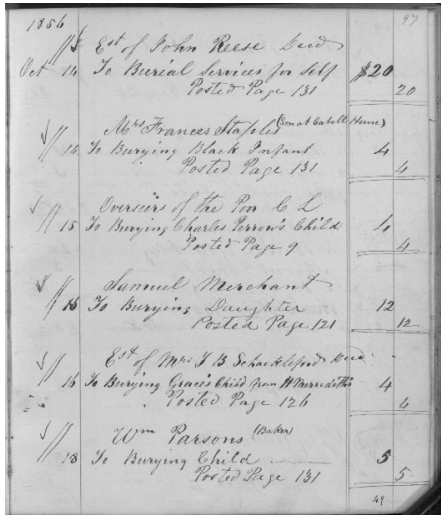 1856 97
Est of John Reese Decd
Oct 14 To Burial Services for Self $20
Posted Page 131 20
Mrs Frances Staples (Son at Cabell House)
14 To Burying Black Infant 4
Posted Page 131 4
Overseirs of the Poor C L
15 To Burying Charles Perrow's Child 4
Posted Page 9 4
Samuel Merchant
16 To Burying Daughter 12
Posted Page 121 12
Est of Mrs T B Schackleford Decd
16 To Burying Grace's Child from 4
Posted Page 126 4
Wm Parsons (Baker)
18 To Burying Child 5
Posted Page 131 5
49